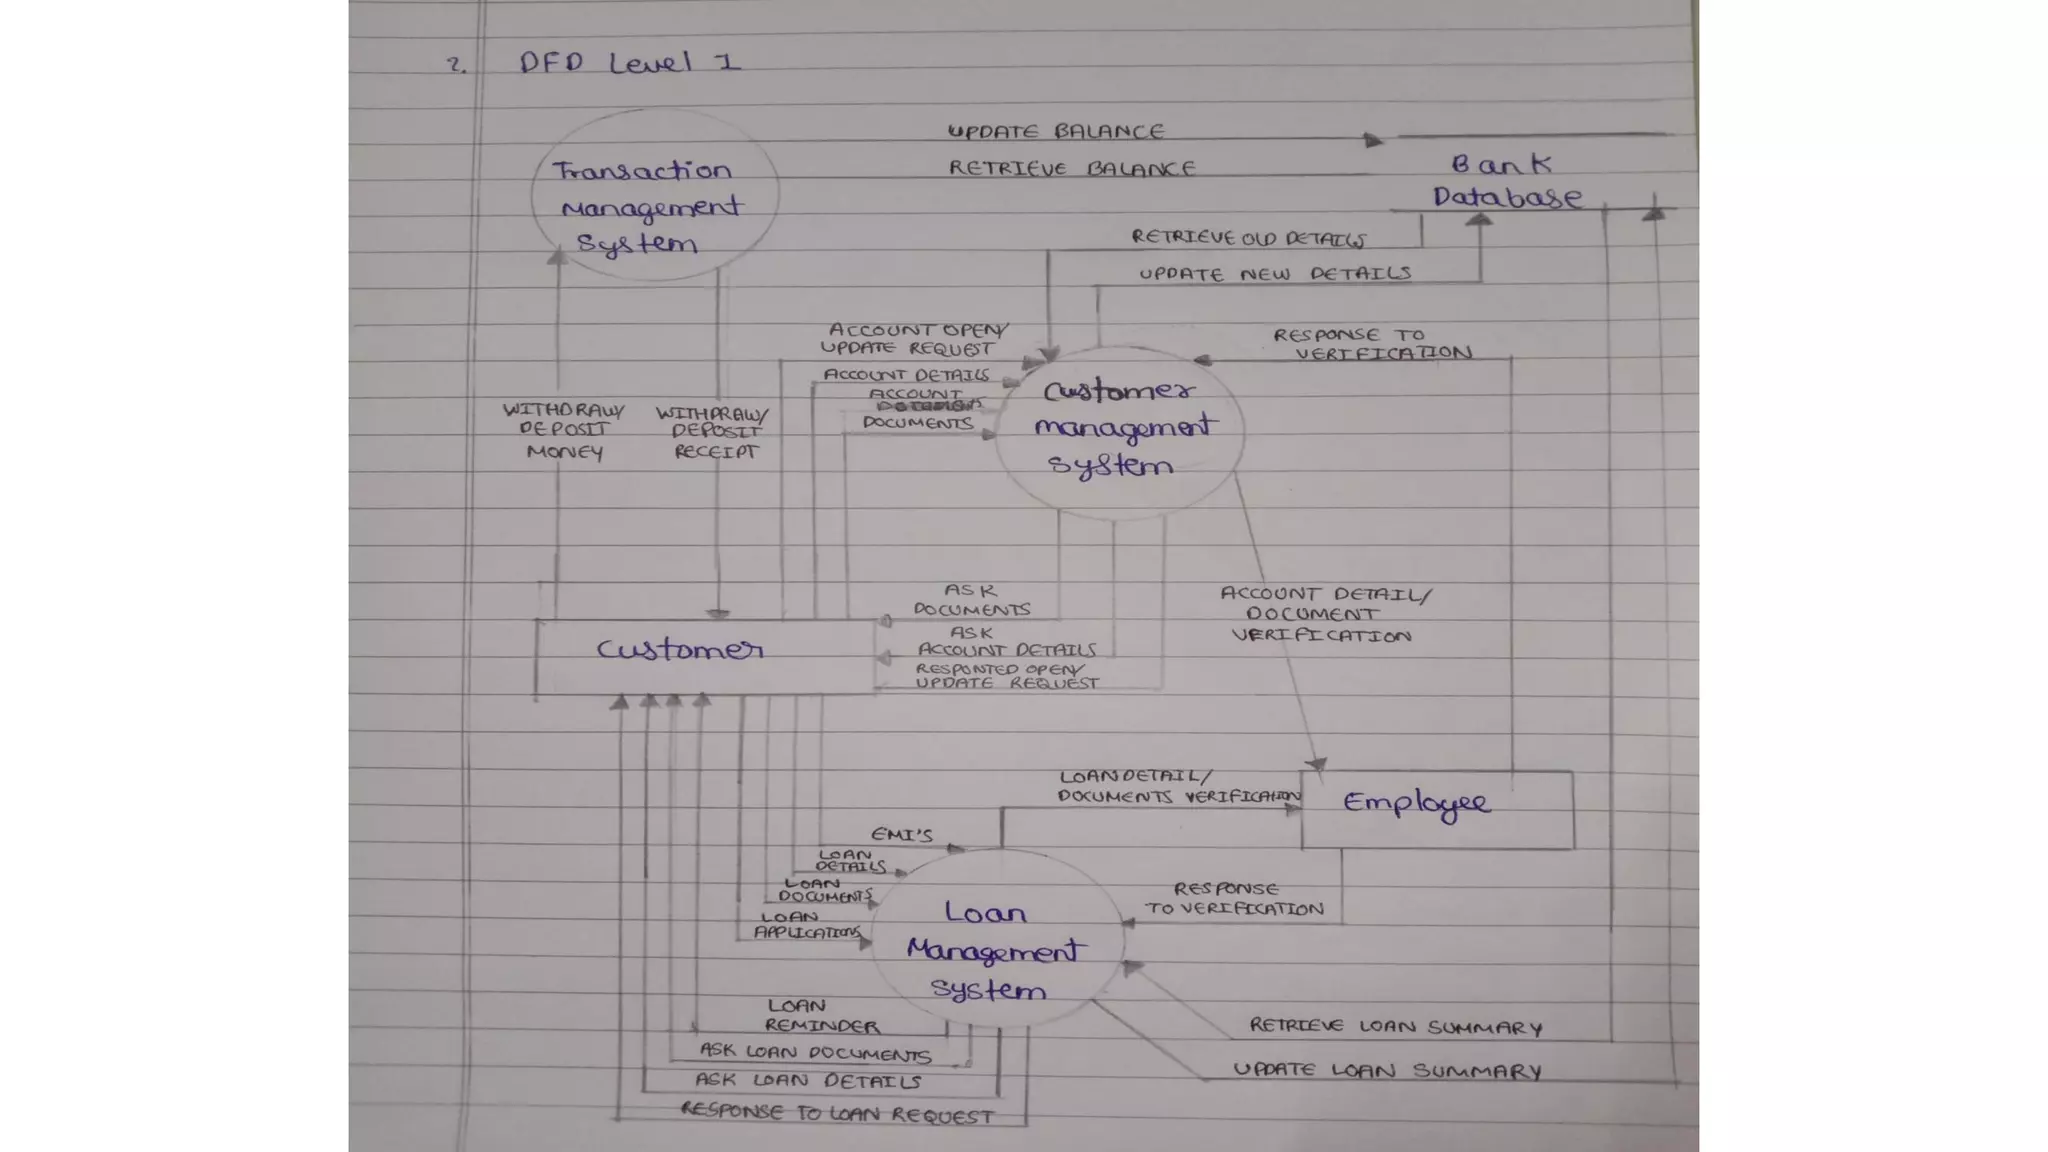 2. DFD Level 1
UPDATE BALANCE
RETRIEVE BALANCE
Transaction
Management
System
Bank
Database
RETRIEVE OLD DETAILS
UPDATE NEW DETAILS
ACCOUNT OPEN/
UPDATE REQUEST
ACCOUNT DETAILS
ACCOUNT
DOCUMENTS
RESPONSE TO
VERIFICATION
Customer
management
system
WITHDRAW/
DEPOSIT
MONEY
WITHDRAW/
DEPOSIT
RECEIPT
ASK
DOCUMENTS
ASK
ACCOUNT DETAILS
RESPONTED OPEN/
UPDATE REQUEST
ACCOUNT DETAIL/
DOCUMENT
VERIFICATION
Customer
LOAN DETAIL/
DOCUMENTS VERIFICATION
Employee
EMI'S
LOAN
DETAILS
LOAN
DOCUMENTS
LOAN
APPLICATIONS
RESPONSE
TO VERIFICATION
Loan
Management
System
LOAN
REMINDER
ASK LOAN DOCUMENTS
ASK LOAN DETAILS
RESPONSE TO LOAN REQUEST
RETRIEVE LOAN SUMMARY
UPDATE LOAN SUMMARY